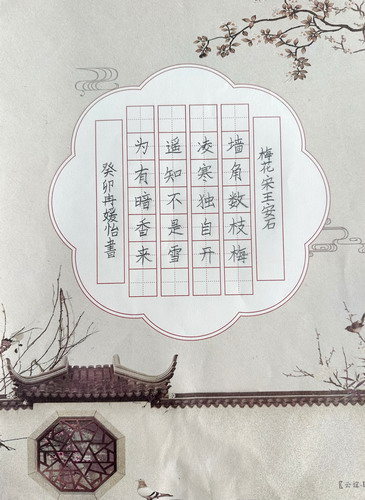 梅花宋王安石
墙角数枝梅
凌寒独自开
遥知不是雪
为有暗香来
癸卯冉媛怡書